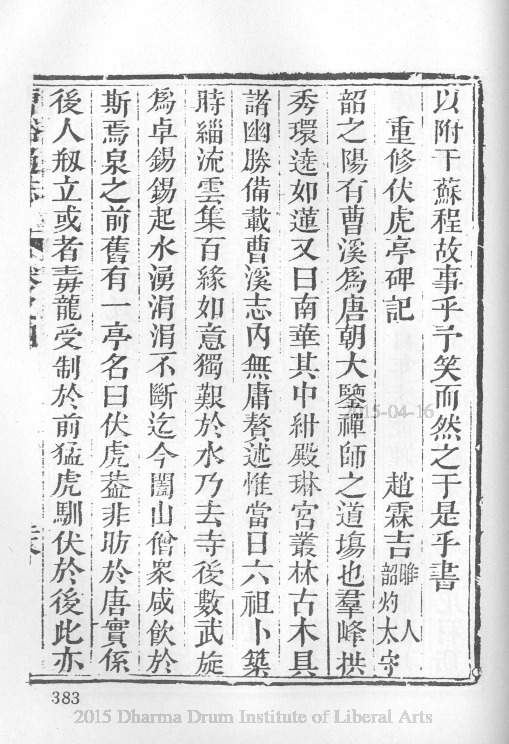 以附于蘇程故事乎予笑而然之于是乎書
重修伏虎亭碑記 趙霖吉睢人韶灼太守
韶之陽有曹溪爲唐朝大鑒禪師之道塲也羣峰拱
秀環遶如蓮又曰南華其中紺殿琳宮叢林古木具
諸幽勝備載曹溪志內無庸贅述惟當日六祖卜築
時緇流雲集百緣如意獨艱於水乃去寺後數武旋
爲卓錫錫起水湧涓涓不斷迄今闔山僧衆咸飲於
斯焉泉之前舊有一亭名曰伏虎葢非昉於唐實係
後人剏立或者毒龍受制於前猛虎馴伏於後此亦
383
2015-04-16
2015 Dharma Drum Institute of Liberal Arts